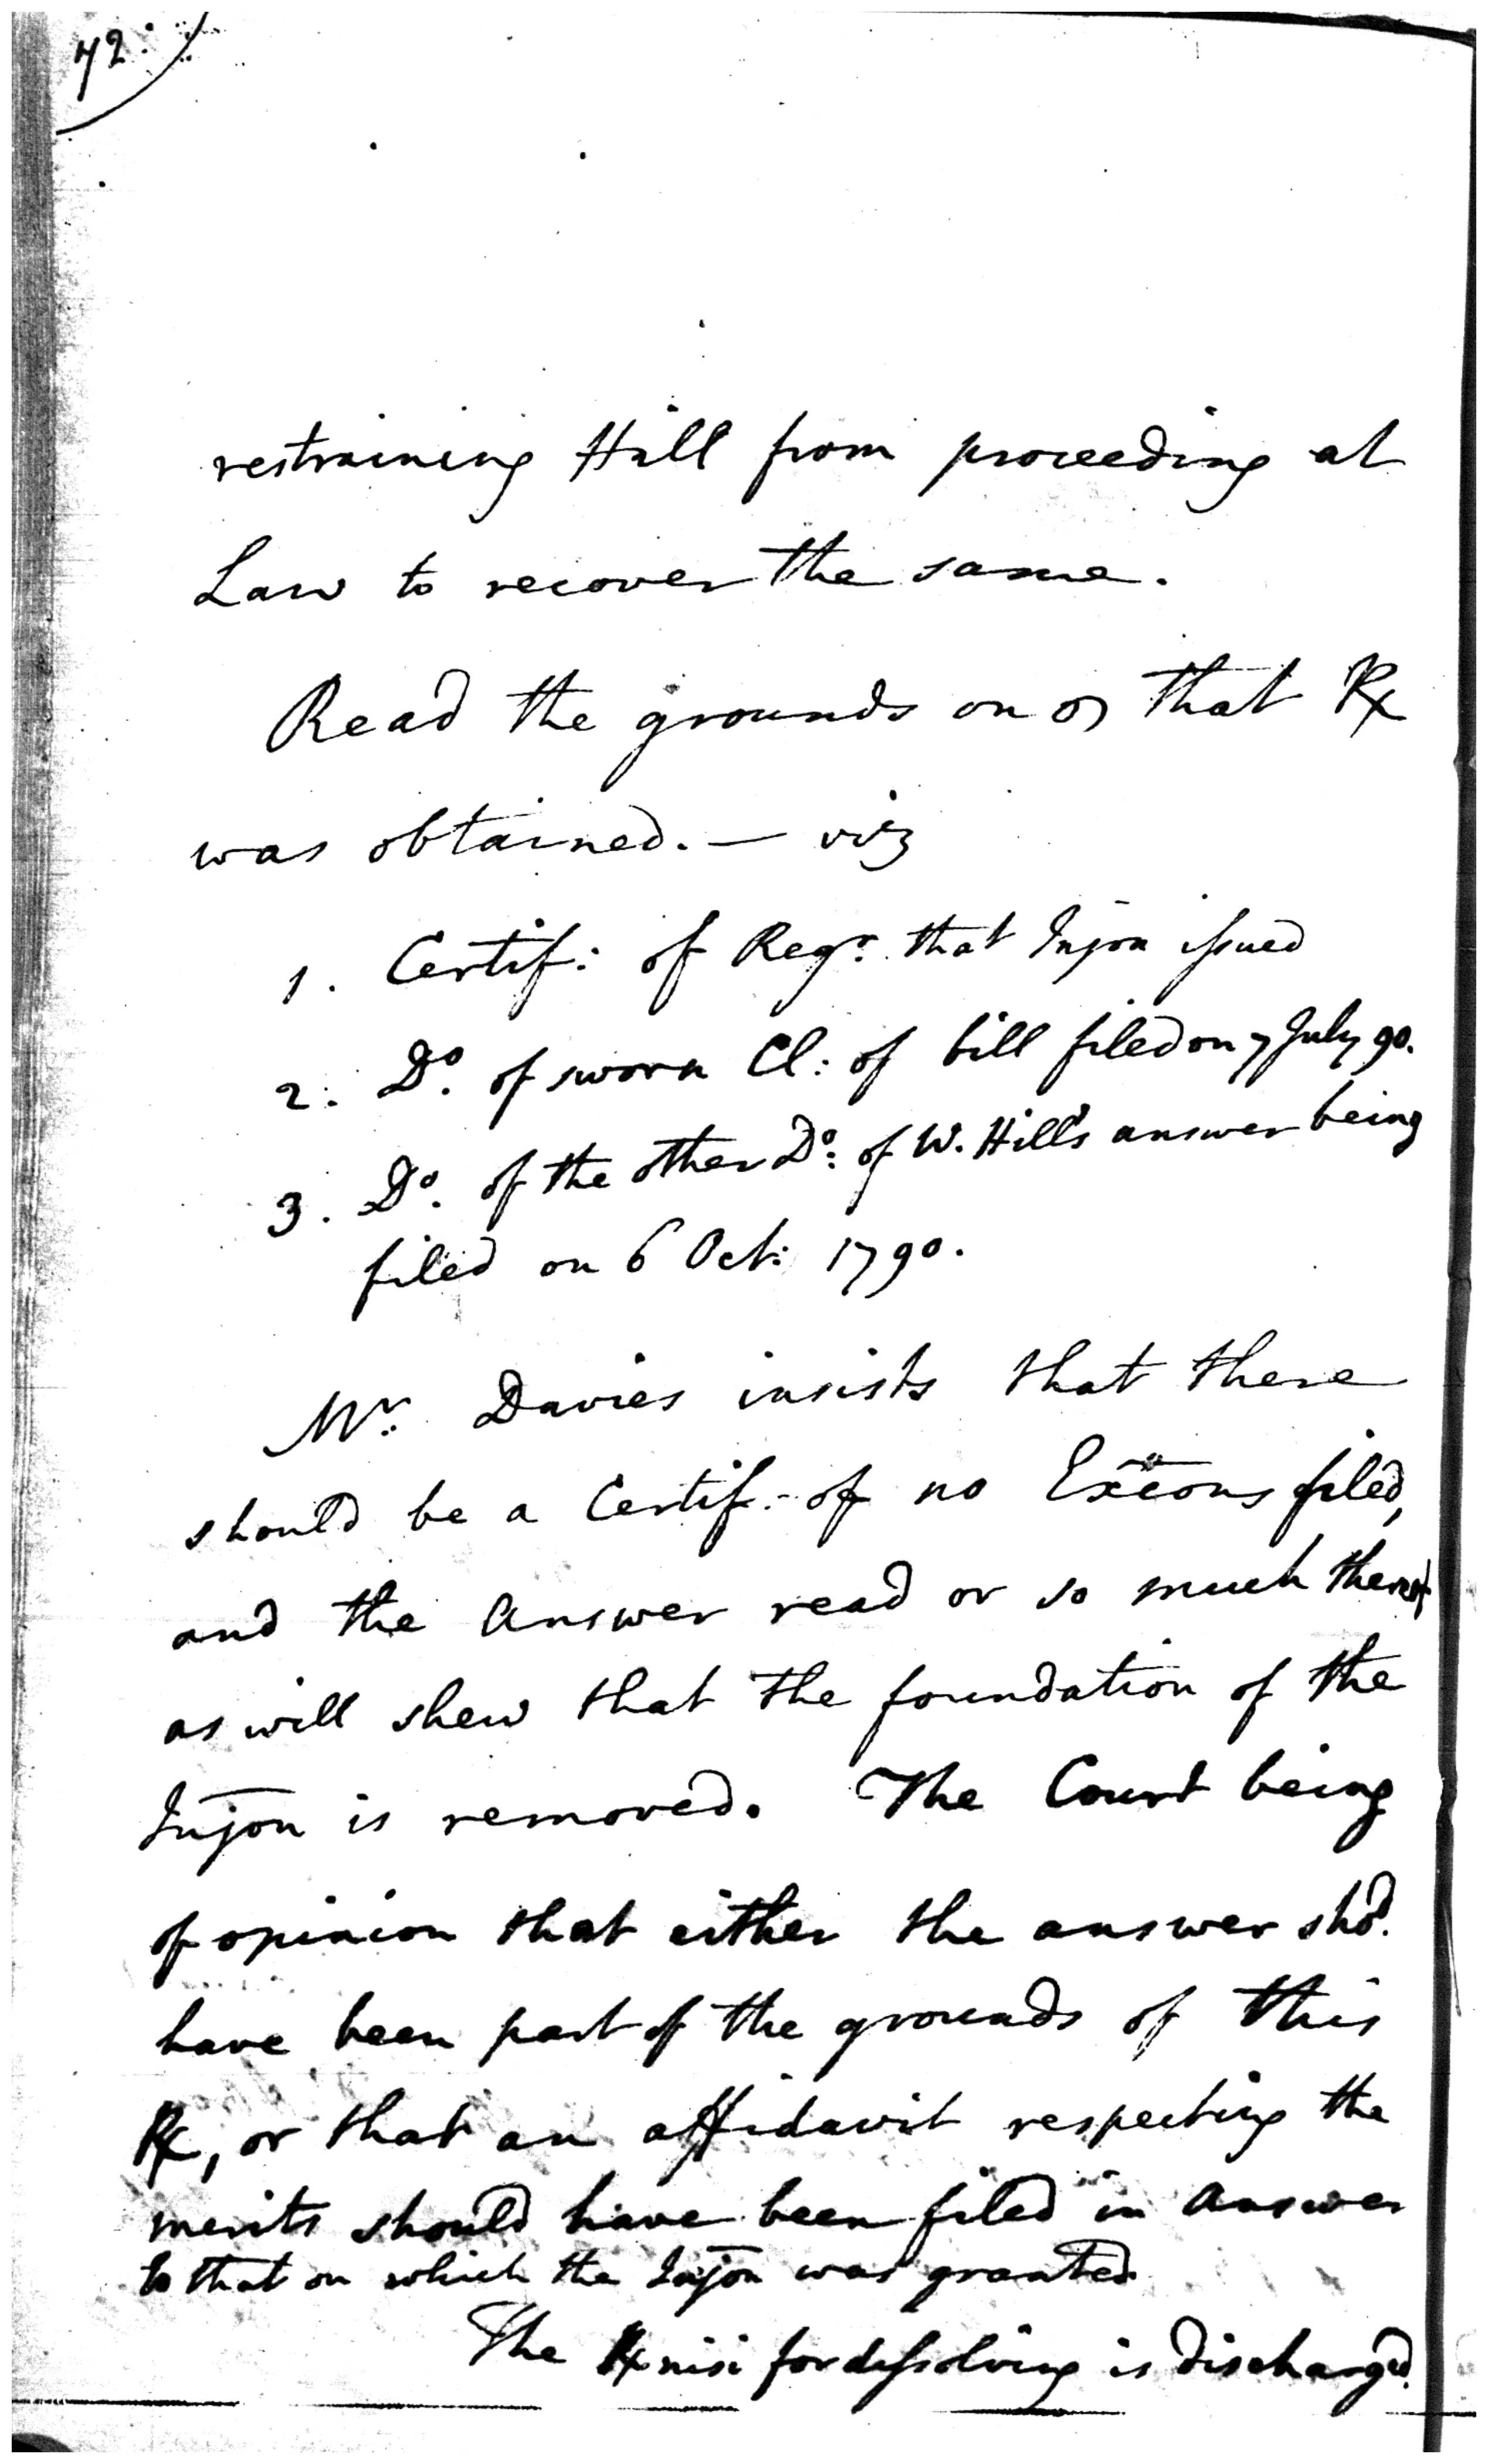 72
restraining Hill from proceeding at
Law to recover the same.
Read the grounds on that Rx
was obtained. — viz
1. Certif: of Regr. that Injon issued
2: Do. of sworn Cl: of bill filed on 7 July 90.
3. Do. of the other Do: of W. Hill's answer being
filed on 6 Oct: 1790.
Mr. Davies insists that there
should be a Certif: of no Excons filed,
and the Answer read or so much thereof
as will shew that the foundation of the
Injon is removed. The Court being
of opinion that either the answer shod.
have been part of the grounds of this
Rx, or that an affidavit respecting the
merits should have been filed in Answer
to that on which the Injon was granted.
The Rx nisi for dissolving is discharged.